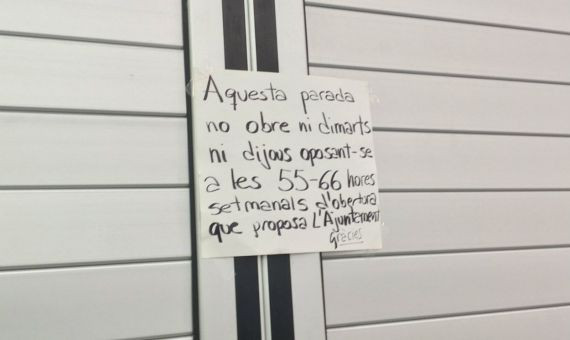 Aquesta parada
no obre ni dimarts
ni dijous oposant-se
a les 55-66 hores
setmanals d'obertura
que proposa L'Ajuntament
Gràcies